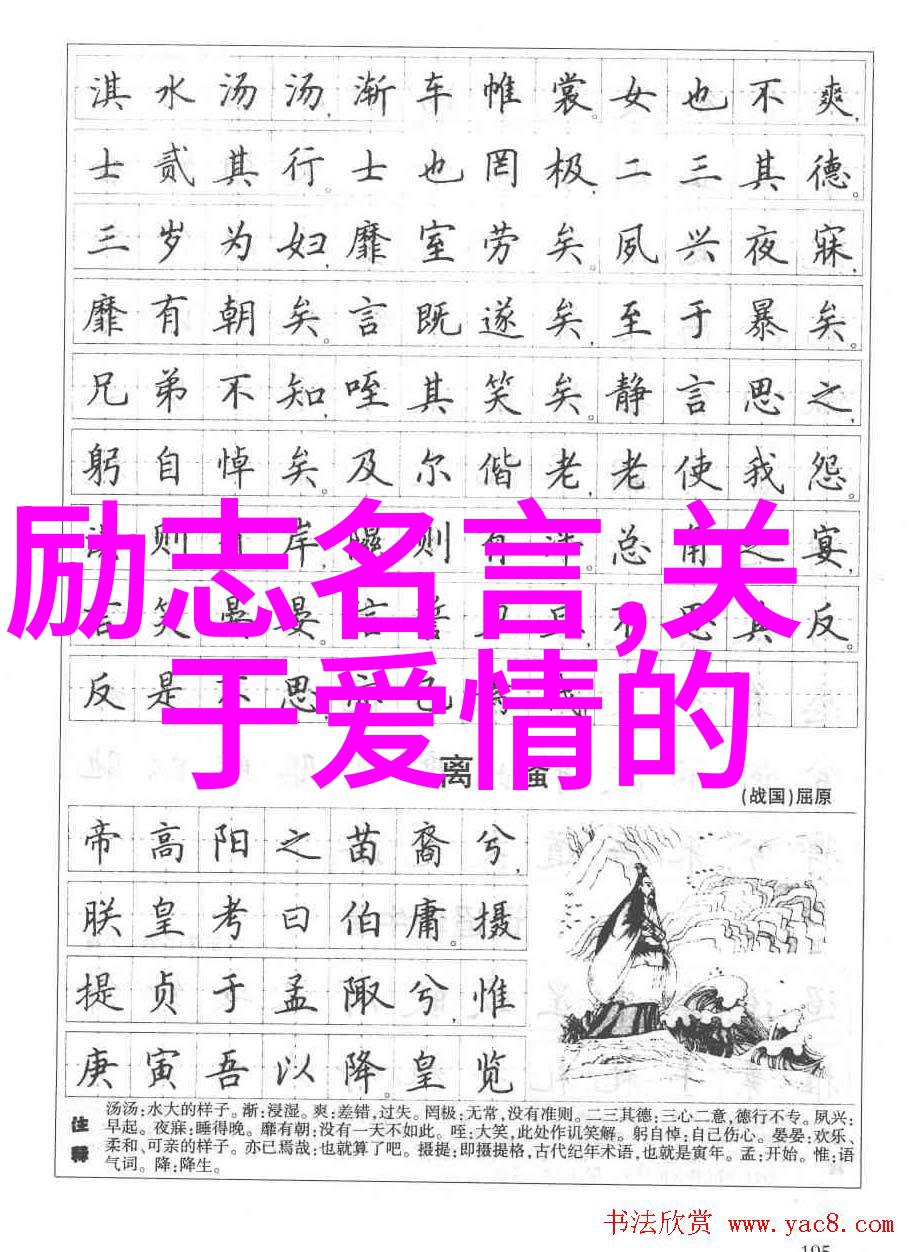 淇水汤汤,渐车帷裳。女也不爽,
士贰其行。士也罔极,二三其德。
三岁为妇,靡室劳矣。夙兴夜寐,
靡有朝矣。言既遂矣,至于暴矣。
兄弟不知,咥其笑矣。静言思之,
躬自悼矣。及尔偕老,老使我怨。
则岸,隰则有泮。总角之宴,
言笑晏晏。信誓旦旦,不思其反。
反是不思,亦已焉哉
励志名言,关
于爱情的
离骚
(战国)屈原
帝高阳之苗裔兮,
朕皇考曰伯庸。摄
提贞于孟陬兮,惟
庚寅吾以降。皇览
注释
汤汤:水大的样子。渐:浸湿。爽:差错,过失。罔极:无常,没有准则。二三其德:三心二意,德行不专。夙兴:
早起。夜寐:睡得晚。靡有朝:没有一天不如此。咥:大笑,此处作讥笑解。躬自悼:自己伤心。晏晏:欢乐、
柔和、可亲的样子。亦已焉哉:也就算了吧。摄提:即摄提格,古代纪年术语,也就是寅年。孟:开始。惟:语
气词。降:降生。
书法欣赏 www.yac8.com
195